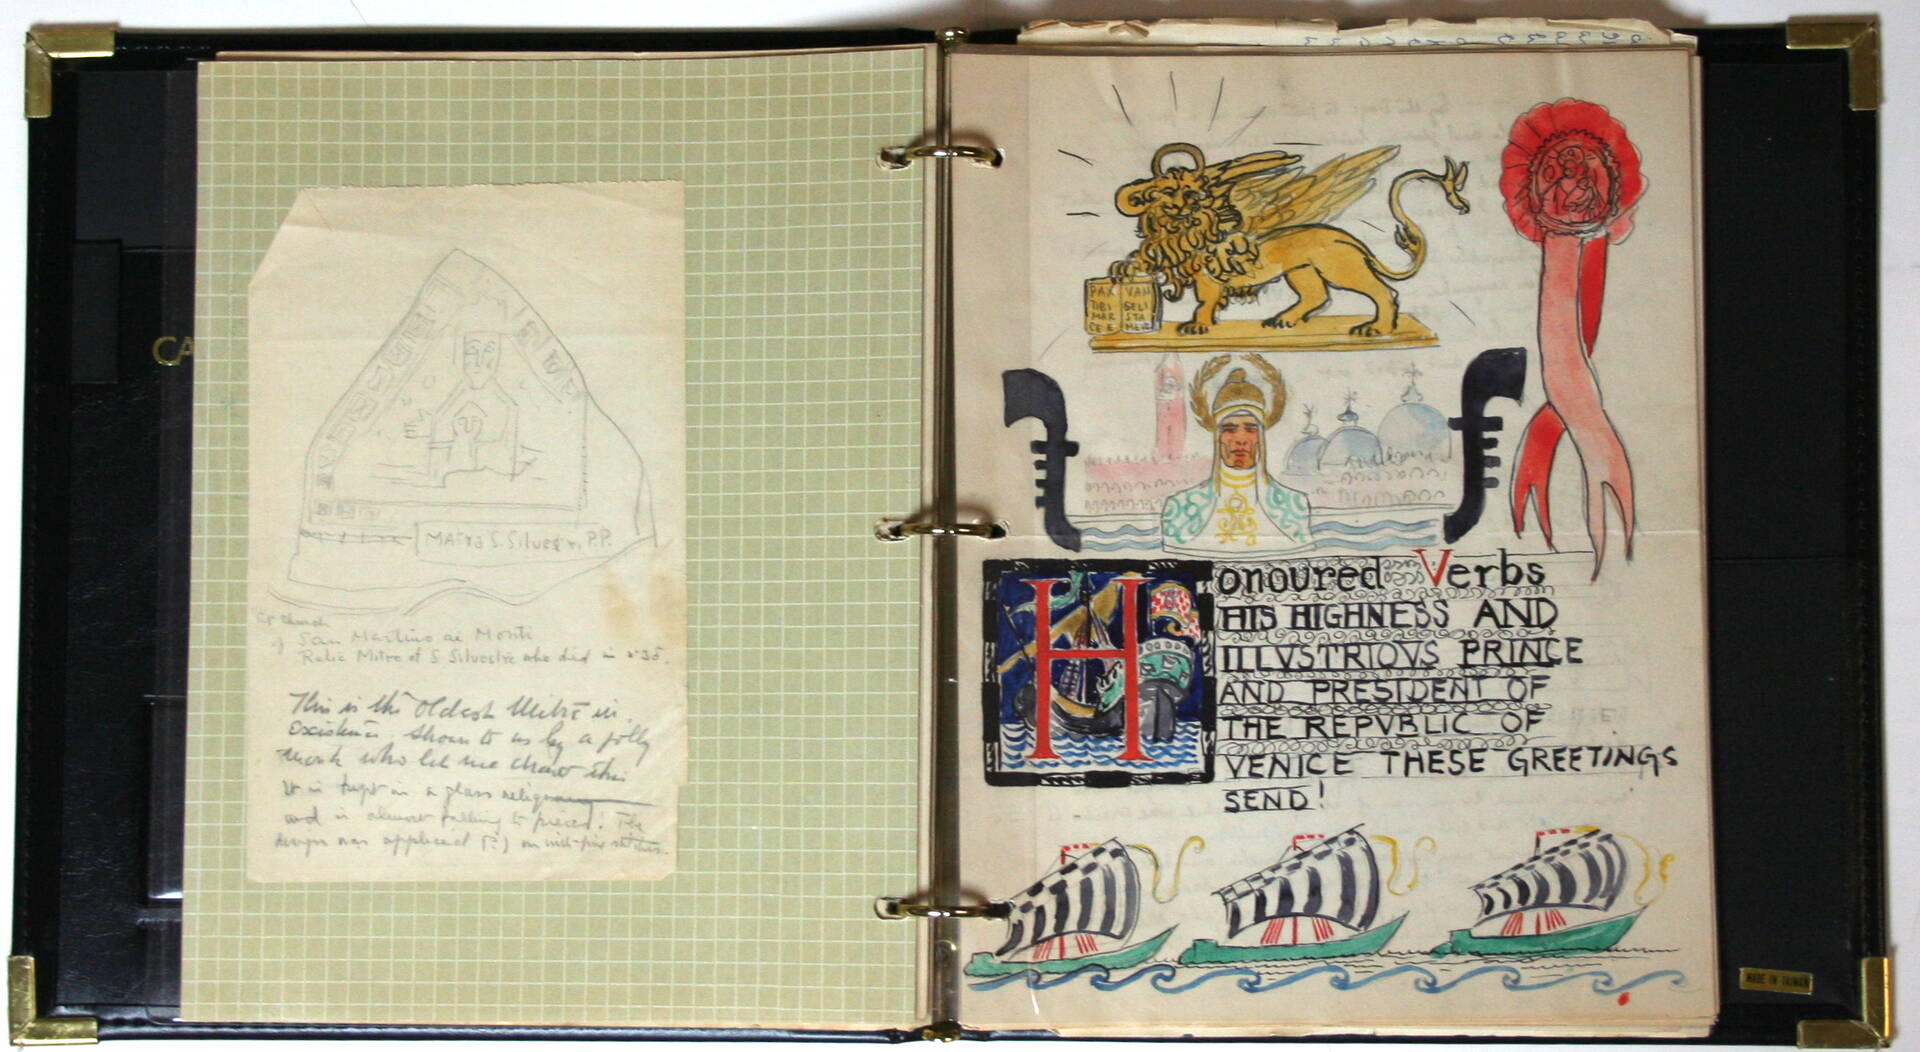 CA
MATRA S. Silvestr. P.P.
at church
of San Martino ai Monti
Relic Mitre of S Silvestre who died in
This is the oldest Mitre in
existence, shown to us by a jolly
monk who let me draw this
It is kept in a glass
and is almost falling to pieces! The
design was appliqued (?) on with fine stitches
PAX VAN
TIBI GELI
MAR STA
CE E MEV
Honoured Verbs
HIS HIGHNESS AND
ILLVSTRIOVS PRINCE
AND PRESIDENT OF
THE REPVBLIC OF
VENICE THESE GREETINGS
SEND!
MADE IN TAIWAN